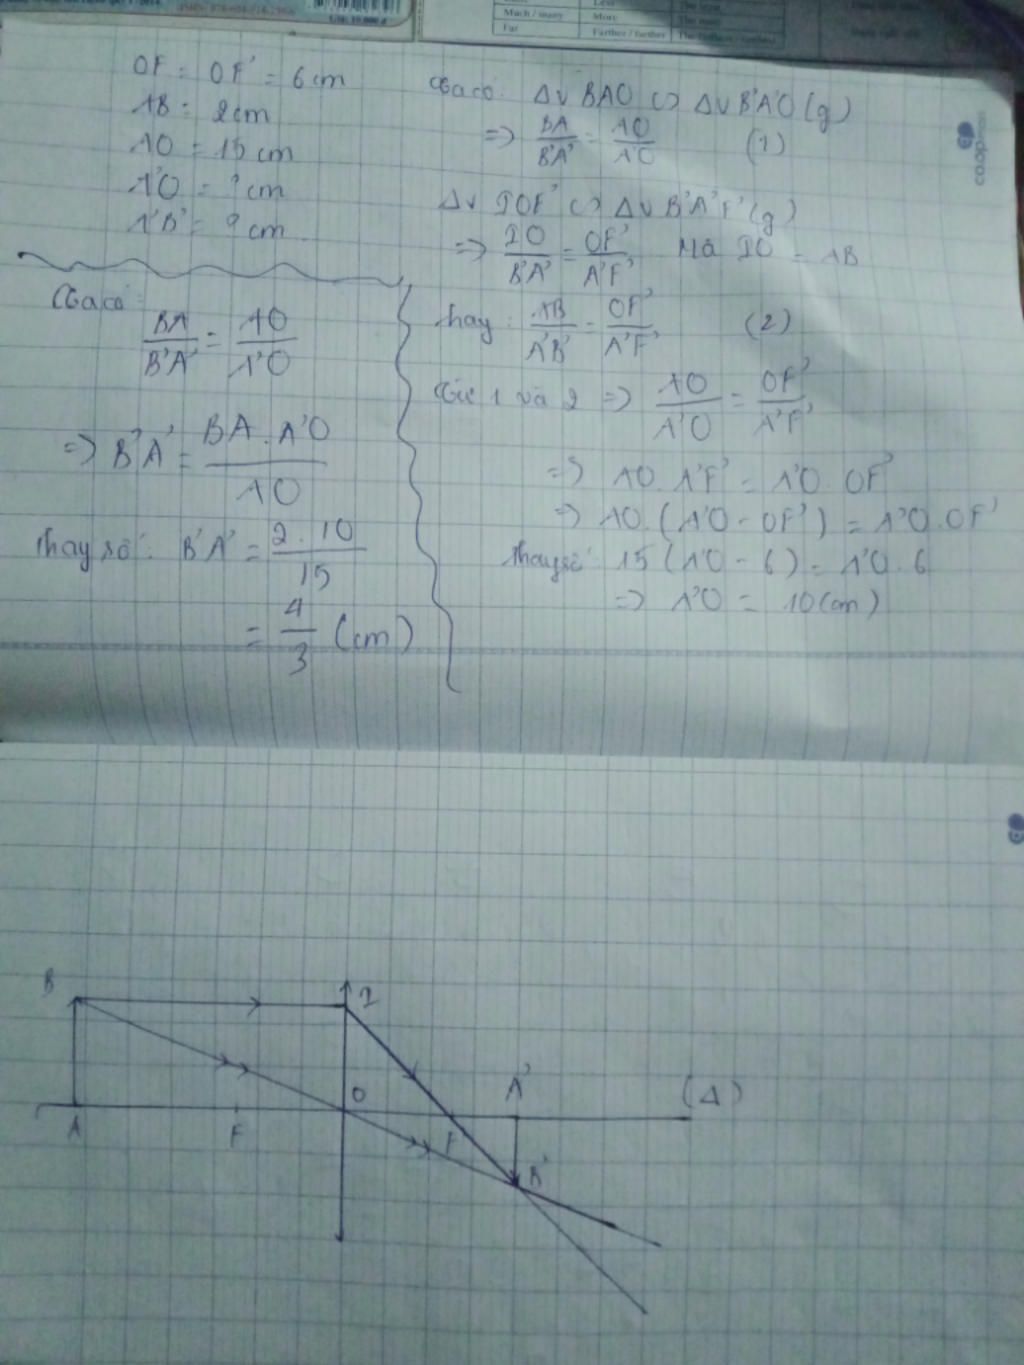 Less
Much / many More The most
Far Farther / further The farthest / furthest
OF = OF' = 6 cm
AB = 2cm
AO = 15 cm
A'O = ? cm
A'B' = ? cm
Ta có:
BA/B'A' = AO/A'O
=> B'A' = BA.A'O/AO
Thay số: B'A' = 2.10/15
= 4/3 (cm)
Ta có: Δv BAO ∽ Δv B'A'O (g)
=> BA/B'A' = AO/A'O (1)
Δv IOF' ∽ Δv B'A'F' (g)
=> IO/B'A' = OF'/A'F' Mà IO = AB
hay: AB/A'B' = OF'/A'F' (2)
Từ 1 và 2 => AO/A'O = OF'/A'F'
=> AO.A'F' = A'O.OF'
=> AO.(A'O - OF') = A'O.OF'
Thay số: 15(A'O - 6) = A'O.6
=> A'O = 10(cm)
co.opmart
B
I
A'
O
(Δ)
A
F
F'
B'